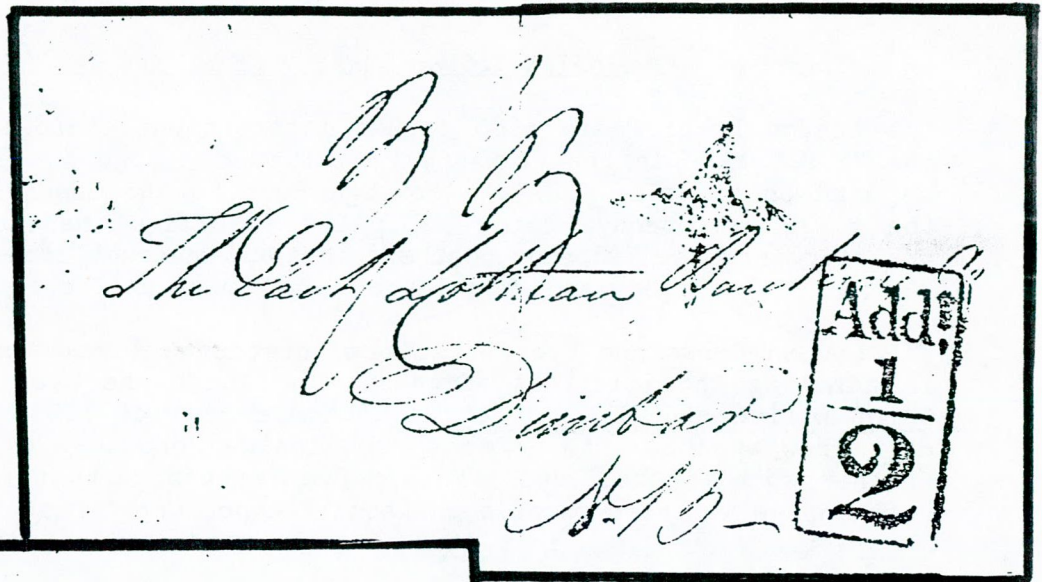 The East Lothian Banking Co
Dunbar
N.B—
Add
1
2